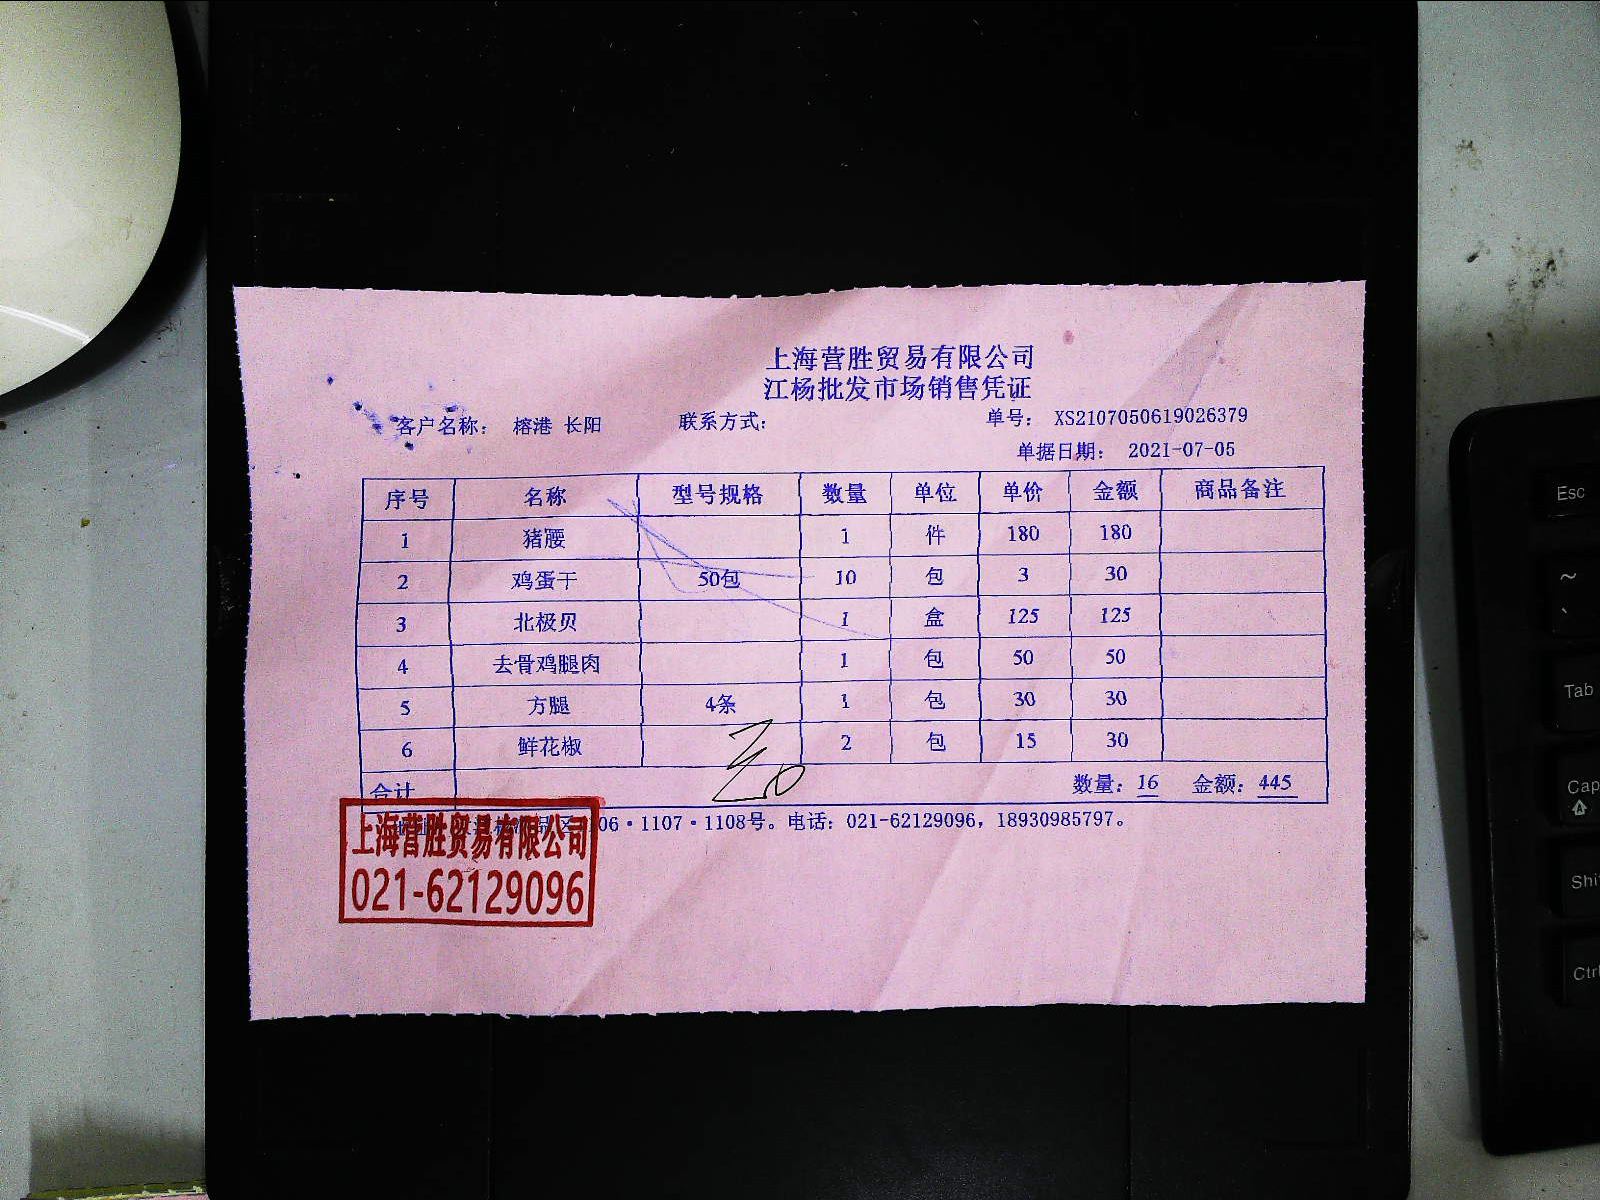 上海营胜贸易有限公司
江杨批发市场销售凭证
客户名称： 榕港 长阳 联系方式： 单号： XS2107050619026379
单据日期： 2021-07-05
序号 名称 型号规格 数量 单位 单价 金额 商品备注
1 猪腰 1 件 180 180
2 鸡蛋干 50包 10 包 3 30
3 北极贝 1 盒 125 125
4 去骨鸡腿肉 1 包 50 50
5 方腿 4条 1 包 30 30
6 鲜花椒 2 包 15 30
合计 数量：16 金额：445
区1106·1107·1108号。电话：021-62129096，18930985797。
上海营胜贸易有限公司
021-62129096
Esc
~
`
Tab
Cap
Shi
Ctrl